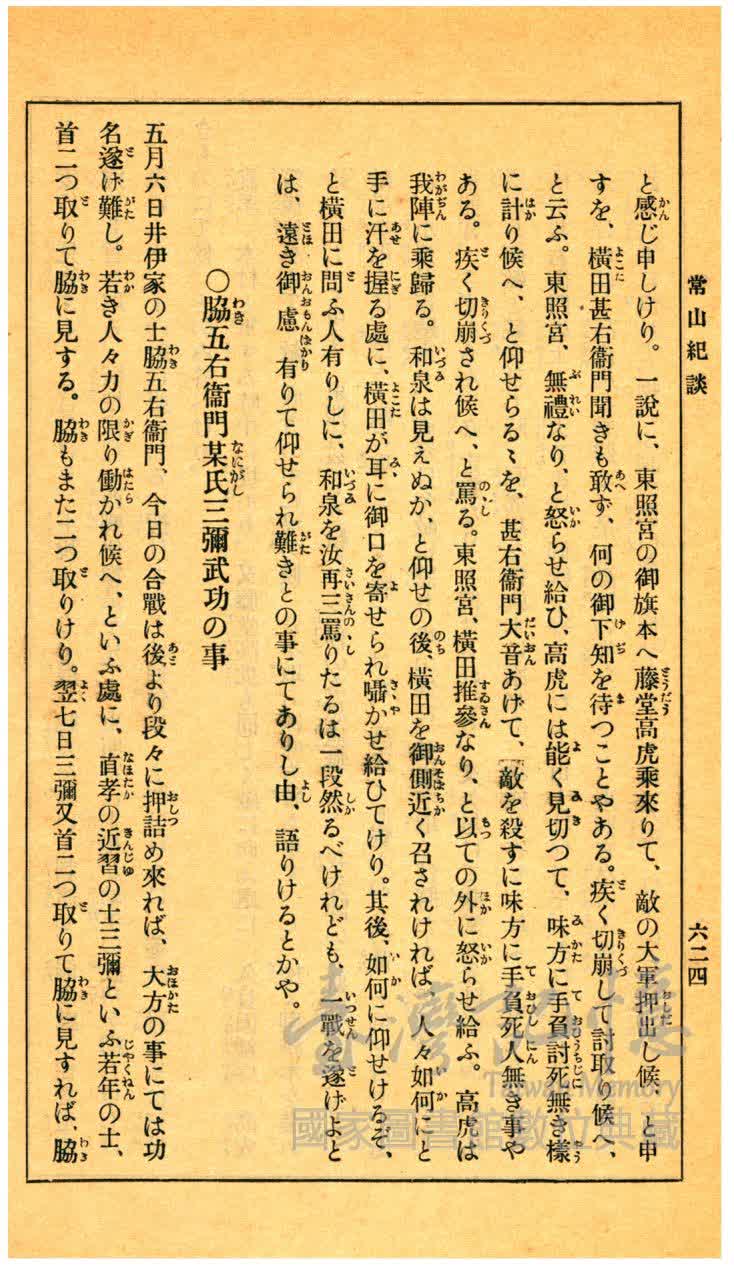 常山紀談
六二四
と感じ申しけり。一說に、東照宮の御旗本へ藤堂高虎乘來りて、敵の大軍押出し候、と申
すを、橫田甚右衞門聞きも敢ず、何の御下知を待つことやある。疾く切崩して討取り候へ、
と云ふ。東照宮、無禮なり、と怒らせ給ひ、高虎には能く見切つて、味方に手負討死無き樣
に計り候へ、と仰せらるゝを、甚右衞門大音あげて、「敵を殺すに味方に手負死人無き事や
ある。疾く切崩され候へ、と罵る。東照宮、橫田推參なり、と以ての外に怒らせ給ふ。高虎は
我陣に乘歸る。和泉は見えぬか、と仰せの後、橫田を御側近く召されければ、人々如何にと
手に汗を握る處に、橫田が耳に御口を寄せられ囁かせ給ひてけり。其後、如何に仰せけるぞ、
と橫田に問ふ人有りしに、和泉を汝再三罵りたるは一段然るべけれども、一戰を遂げよと
は、遠き御慮有りて仰せられ難きとの事にてありし由、語りけるとかや。
〇脇五右衞門某氏三彌武功の事
五月六日井伊家の士脇五右衞門、今日の合戰は後より段々に押詰め來れば、大方の事にては功
名遂げ難し。若き人々力の限り働かれ候へ、といふ處に、直孝の近習の士三彌といふ若年の士、
首二つ取りて脇に見する。脇もまた二つ取りけり。翌七日三彌又首二つ取りて脇に見すれば、脇
臺灣記憶
Taiwan Memory
國家圖書館數位典藏